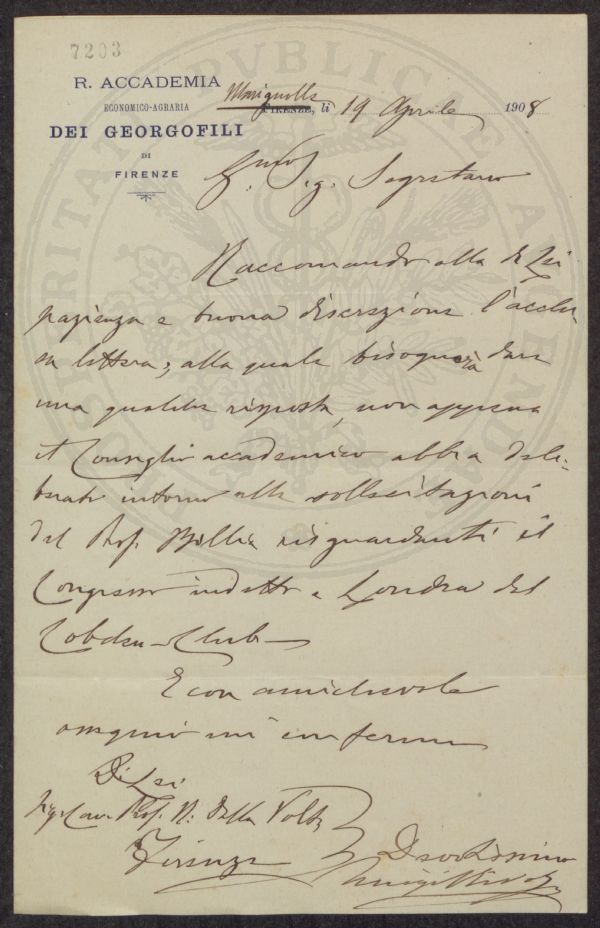 7203
R. ACCADEMIA
ECONOMICO-AGRARIA
DEI GEORGOFILI
DI
FIRENZE
Marignolle
FIRENZE, li 19 Aprile 1908
Sig. Segretario
Raccomando alla di Lei
pazienza e buona discrezione l'acclu-
sa lettera; alla quale bisognerà dare
una qualche risposta, non appena
il Consiglio accademico abbia deli-
berato intorno alle sollecitazioni
del Prof. Billia risguardanti il
Congresso indetto a Londra dal
Cobden-Club
E con amichevole
ossequio mi confermo
Di Lei
Sig. Cav. Prof. R. Dalla Volta
Firenze
Devotissimo
Luigi
POSTERITATI PVBLICAE